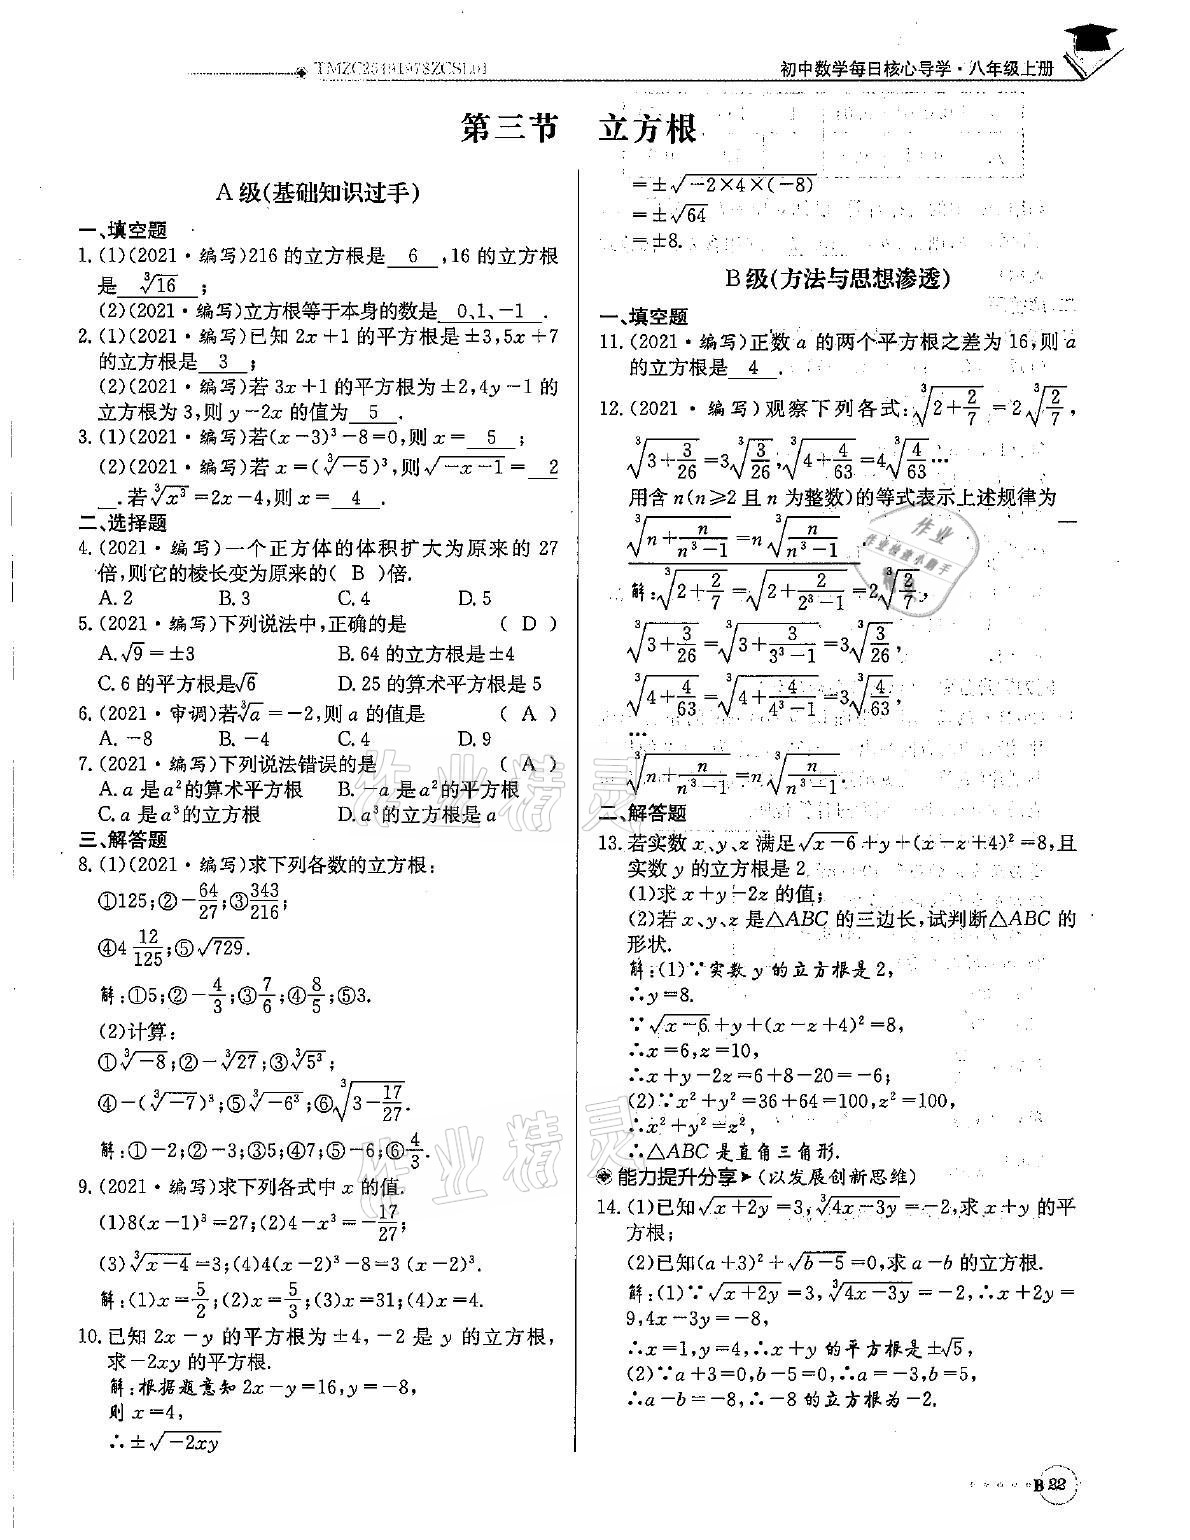 TMZC25491978ZCSL01
初中数学每日核心导学·八年级上册
第三节 立方根
A级(基础知识过手)
一、填空题
1.(1)(2021·编写)216的立方根是 6 ,16的立方根
是 ∛16 ;
(2)(2021·编写)立方根等于本身的数是 0、1、-1 .
2.(1)(2021·编写)已知2x+1的平方根是±3,5x+7
的立方根是 3 ;
(2)(2021·编写)若3x+1的平方根为±2,4y-1的
立方根为3,则y-2x的值为 5 .
3.(1)(2021·编写)若(x-3)³-8=0,则x= 5 ;
(2)(2021·编写)若x=(∛-5)³,则√-x-1= 2
.若∛x³=2x-4,则x= 4 .
二、选择题
4.(2021·编写)一个正方体的体积扩大为原来的27
倍,则它的棱长变为原来的( B )倍.
A.2 B.3 C.4 D.5
5.(2021·编写)下列说法中,正确的是 ( D )
A.√9=±3 B.64的立方根是±4
C.6的平方根是√6 D.25的算术平方根是5
6.(2021·审调)若∛a=-2,则a的值是 ( A )
A.-8 B.-4 C.4 D.9
7.(2021·编写)下列说法错误的是 ( A )
A.a是a²的算术平方根 B.-a是a²的平方根
C.a是a³的立方根 D.a³的立方根是a
三、解答题
8.(1)(2021·编写)求下列各数的立方根:
①125;②-64/27;③343/216;
④4 12/125;⑤√729.
解:①5;②-4/3;③7/6;④8/5;⑤3.
(2)计算:
①∛-8;②-∛27;③∛5³;
④-(∛-7)³;⑤∛-6³;⑥∛(3-17/27).
解:①-2;②-3;③5;④7;⑤-6;⑥4/3.
9.(2021·编写)求下列各式中x的值.
(1)8(x-1)³=27;(2)4-x³=-17/27;
(3)∛x-4=3;(4)4(x-2)³-8=3(x-2)³.
解:(1)x=5/2;(2)x=5/3;(3)x=31;(4)x=4.
10.已知2x-y的平方根为±4,-2是y的立方根,
求-2xy的平方根.
解:根据题意知2x-y=16,y=-8,
则x=4,
∴±√-2xy
=±√-2×4×(-8)
=±√64
=±8.
B级(方法与思想渗透)
一、填空题
11.(2021·编写)正数a的两个平方根之差为16,则a
的立方根是 4 .
12.(2021·编写)观察下列各式:∛(2+2/7)=2∛(2/7),
∛(3+3/26)=3∛(3/26),∛(4+4/63)=4∛(4/63)…
用含n(n≥2且n为整数)的等式表示上述规律为
∛(n+n/(n³-1))=n∛(n/(n³-1))
解:∛(2+2/7)=∛(2+2/(2³-1))=2∛(2/7),
∛(3+3/26)=∛(3+3/(3³-1))=3∛(3/26),
∛(4+4/63)=∛(4+4/(4³-1))=3∛(4/63),
…
∛(n+n/(n³-1))=n∛(n/(n³-1)).
二、解答题
13.若实数x、y、z满足√x-6+y+(x-z+4)²=8,且
实数y的立方根是2
(1)求x+y-2z的值;
(2)若x、y、z是△ABC的三边长,试判断△ABC的
形状.
解:(1)∵实数y的立方根是2,
∴y=8.
∵√x-6+y+(x-z+4)²=8,
∴x=6,z=10,
∴x+y-2z=6+8-20=-6;
(2)∵x²+y²=36+64=100,z²=100,
∴x²+y²=z²,
∴△ABC是直角三角形.
能力提升分享(以发展创新思维)
14.(1)已知√x+2y=3,∛4x-3y=-2,求x+y的平
方根;
(2)已知(a+3)²+√b-5=0,求a-b的立方根.
解:(1)∵√x+2y=3,∛4x-3y=-2,∴x+2y=
9,4x-3y=-8,
∴x=1,y=4,∴x+y的平方根是±√5,
(2)∵a+3=0,b-5=0,∴a=-3,b=5,
∴a-b=-8,∴-8的立方根为-2.
作业
作业检查小助手
作业精灵
作业精灵
B 22